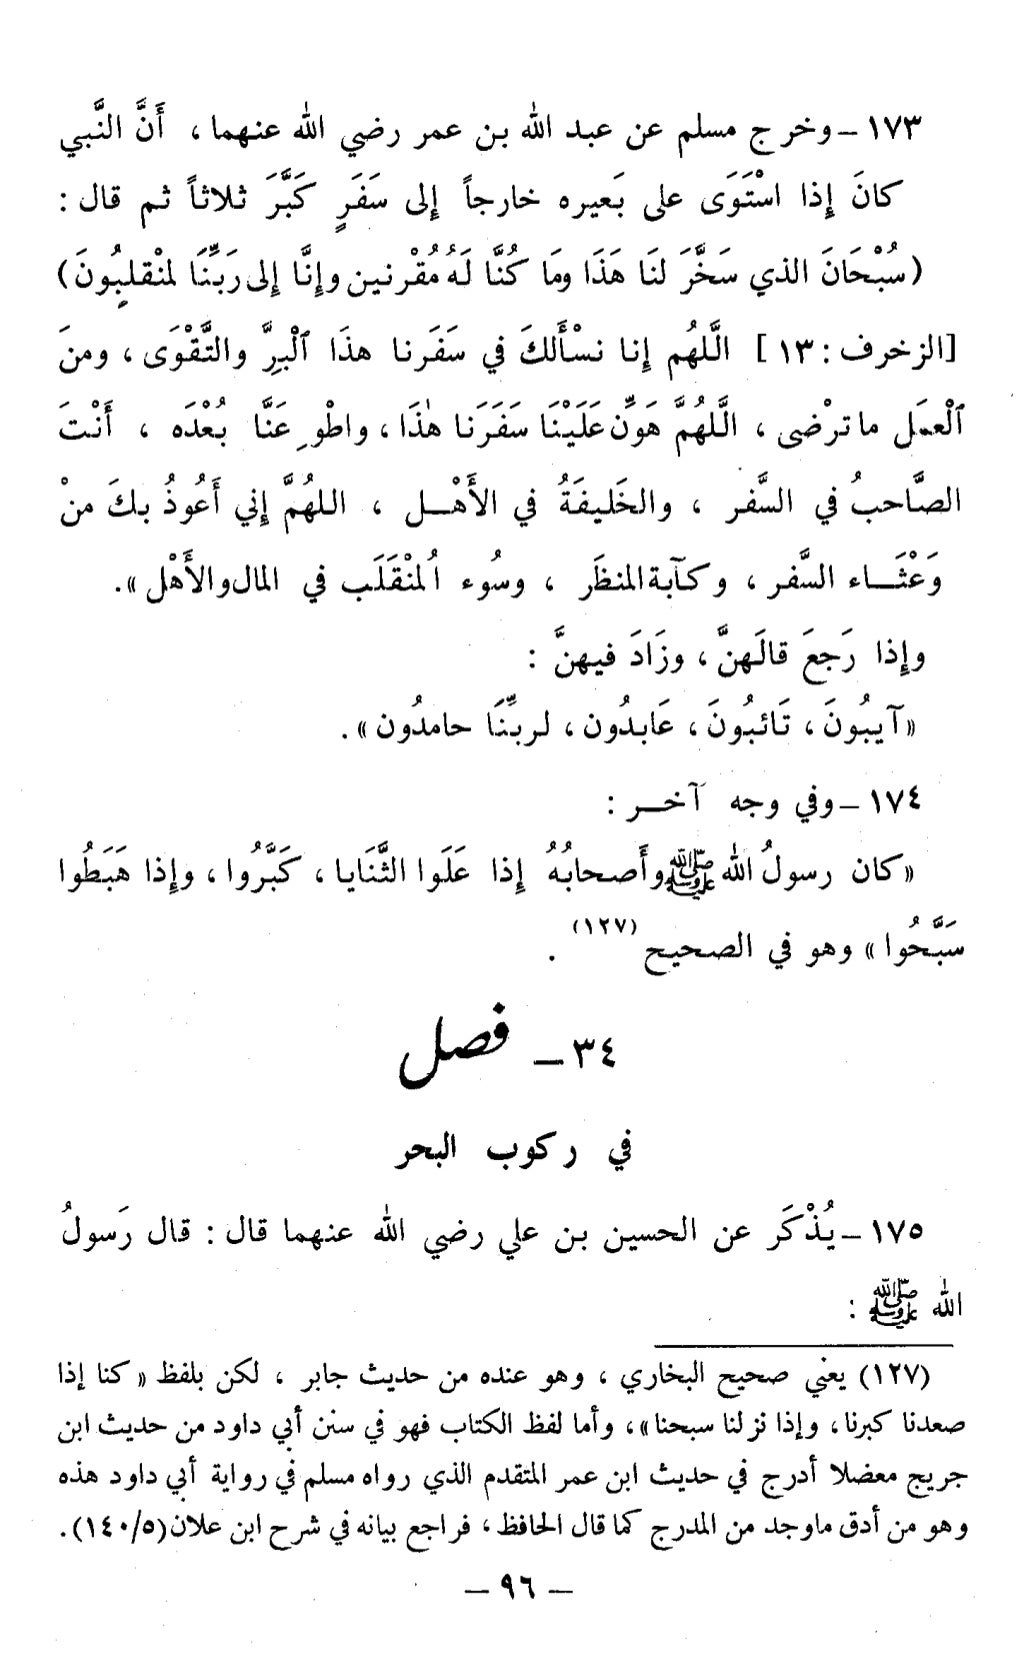 ١٧٣ – وخرج مسلم عن عبد الله بن عمر رضي الله عنهما ، أَنَّ النَّبي
كانَ إِذا اسْتَوَى على بَعيره خارجاً إِلى سَفَرٍ كَبَّرَ ثلاثاً ثم قال :
(سُبْحَانَ الذي سَخَّرَ لنَا هَذَا ومَا كُنَّا لَهُ مُقْرنين وإِنَّا إِلى رَبِّنَا لمنْقلِبُونَ)
[الزخرف : ١٣] الَّلهُم إِنا نسْأَلكَ في سَفَرنا هذَا ٱلْبِرَّ والتَّقْوَى ، ومنَ
ٱلْعمَل ماترْضى ، الَّلهُمَّ هَوِّن عَلَيْنَا سَفَرَنا هٰذَا ، واطْوِ عَنَّا بُعْدَه ، أَنْتَ
الصَّاحبُ في السَّفر ، والخَليفَةُ في الأَهْـل ، اللهُمَّ إِني أَعُوذُ بكَ منْ
وَعْثَـاء السَّفر ، وكآبة المنظَر ، وسُوء اُلمنْقَلَب في المال والأَهْل » .
وإِذا رَجعَ قالَهنَّ ، وزَادَ فيهنَّ :
« آيبُونَ ، تَائبُونَ ، عَابدُون ، لربِّنَا حامدُون » .
١٧٤ – وفي وجه آخـر :
« كان رسولُ الله ﷺ وأَصحابُهُ إِذا عَلَوا الثَّنَايا ، كَبَّرُوا ، وإِذا هَبَطُوا
سَبَّحُوا » وهو في الصحيح (١٢٧) .
٣٤ – فصل
في ركوب البحر
١٧٥ – يُذْكَر عن الحسين بن علي رضي الله عنهما قال : قال رَسولُ
الله ﷺ :
(١٢٧) يعني صحيح البخاري ، وهو عنده من حديث جابر ، لكن بلفظ « كنا إذا
صعدنا كبرنا ، وإذا نزلنا سبحنا » ، وأما لفظ الكتاب فهو في سنن أبي داود من حديث ابن
جريج معضلا أدرج في حديث ابن عمر المتقدم الذي رواه مسلم في رواية أبي داود هذه
وهو من أدق ماوجد من المدرج كما قال الحافظ ، فراجع بيانه في شرح ابن علان (٥/١٤٠) .
– ٩٦ –